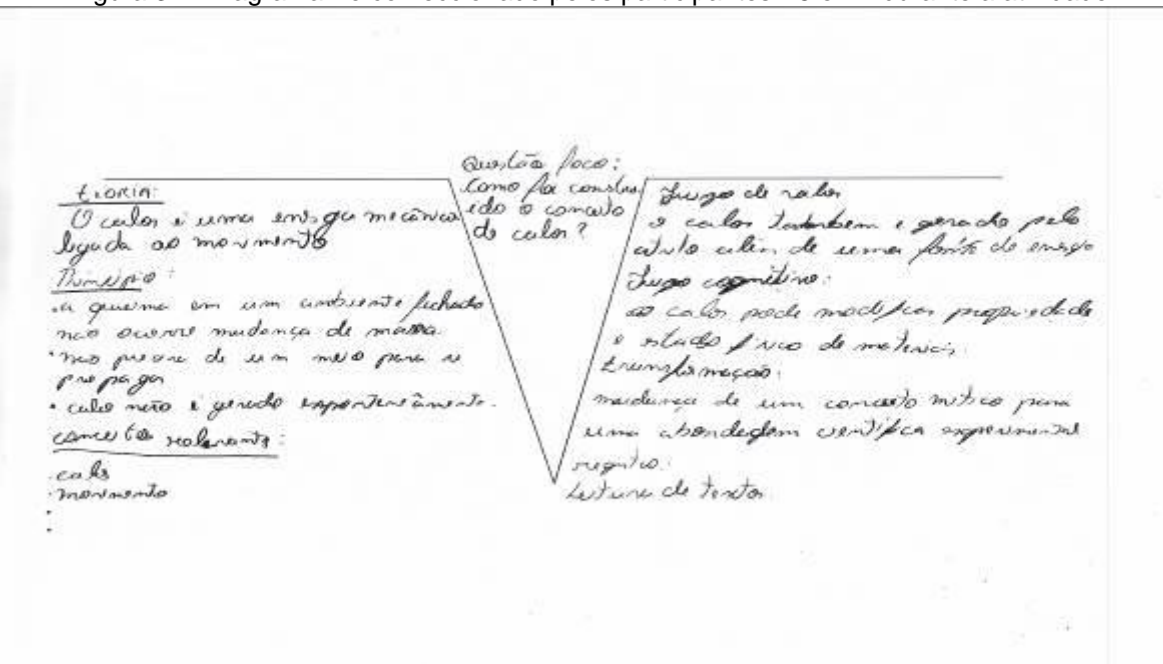 Questão foco:
Como foi constru
ido o conceito
de calor?
teoria:
O calor é uma energia mecânica
ligada ao movimento
Princípio:
.a queima em um ambiente fechado
não ocorre mudança de massa.
.não precisa de um meio para se
propagar
.calor não é gerado espontaneamente.
conceitos relevantes:
.calor
.movimento
Juízo de valor
o calor também é gerado pelo
atrito além de uma fonte de energia
Juízo cognitivo:
o calor pode modificar propriedade
e estado físico de materiais.
transformação:
mudança de um conceito mítico para
uma abordagem científica experimental
registro:
Leitura de textos.